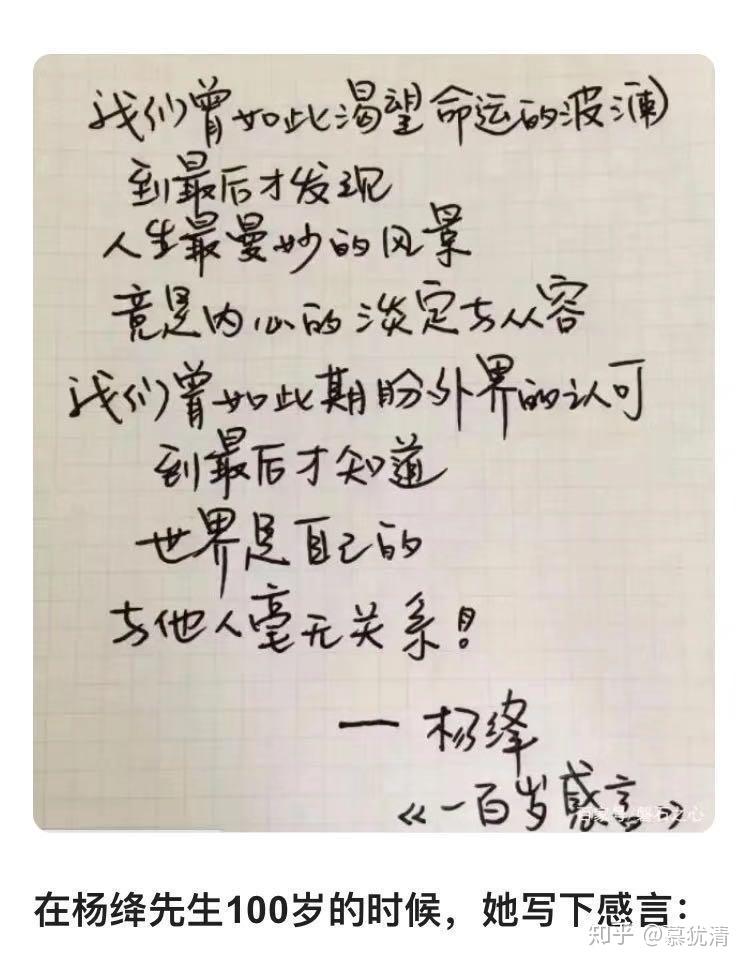 我们曾如此渴望命运的波澜
到最后才发现
人生最曼妙的风景
竟是内心的淡定与从容
我们曾如此期盼外界的认可
到最后才知道
世界是自己的
与他人毫无关系！
— 杨绛
《一百岁感言》
百家号/磐石之心
在杨绛先生100岁的时候，她写下感言：
知乎 @慕犹清